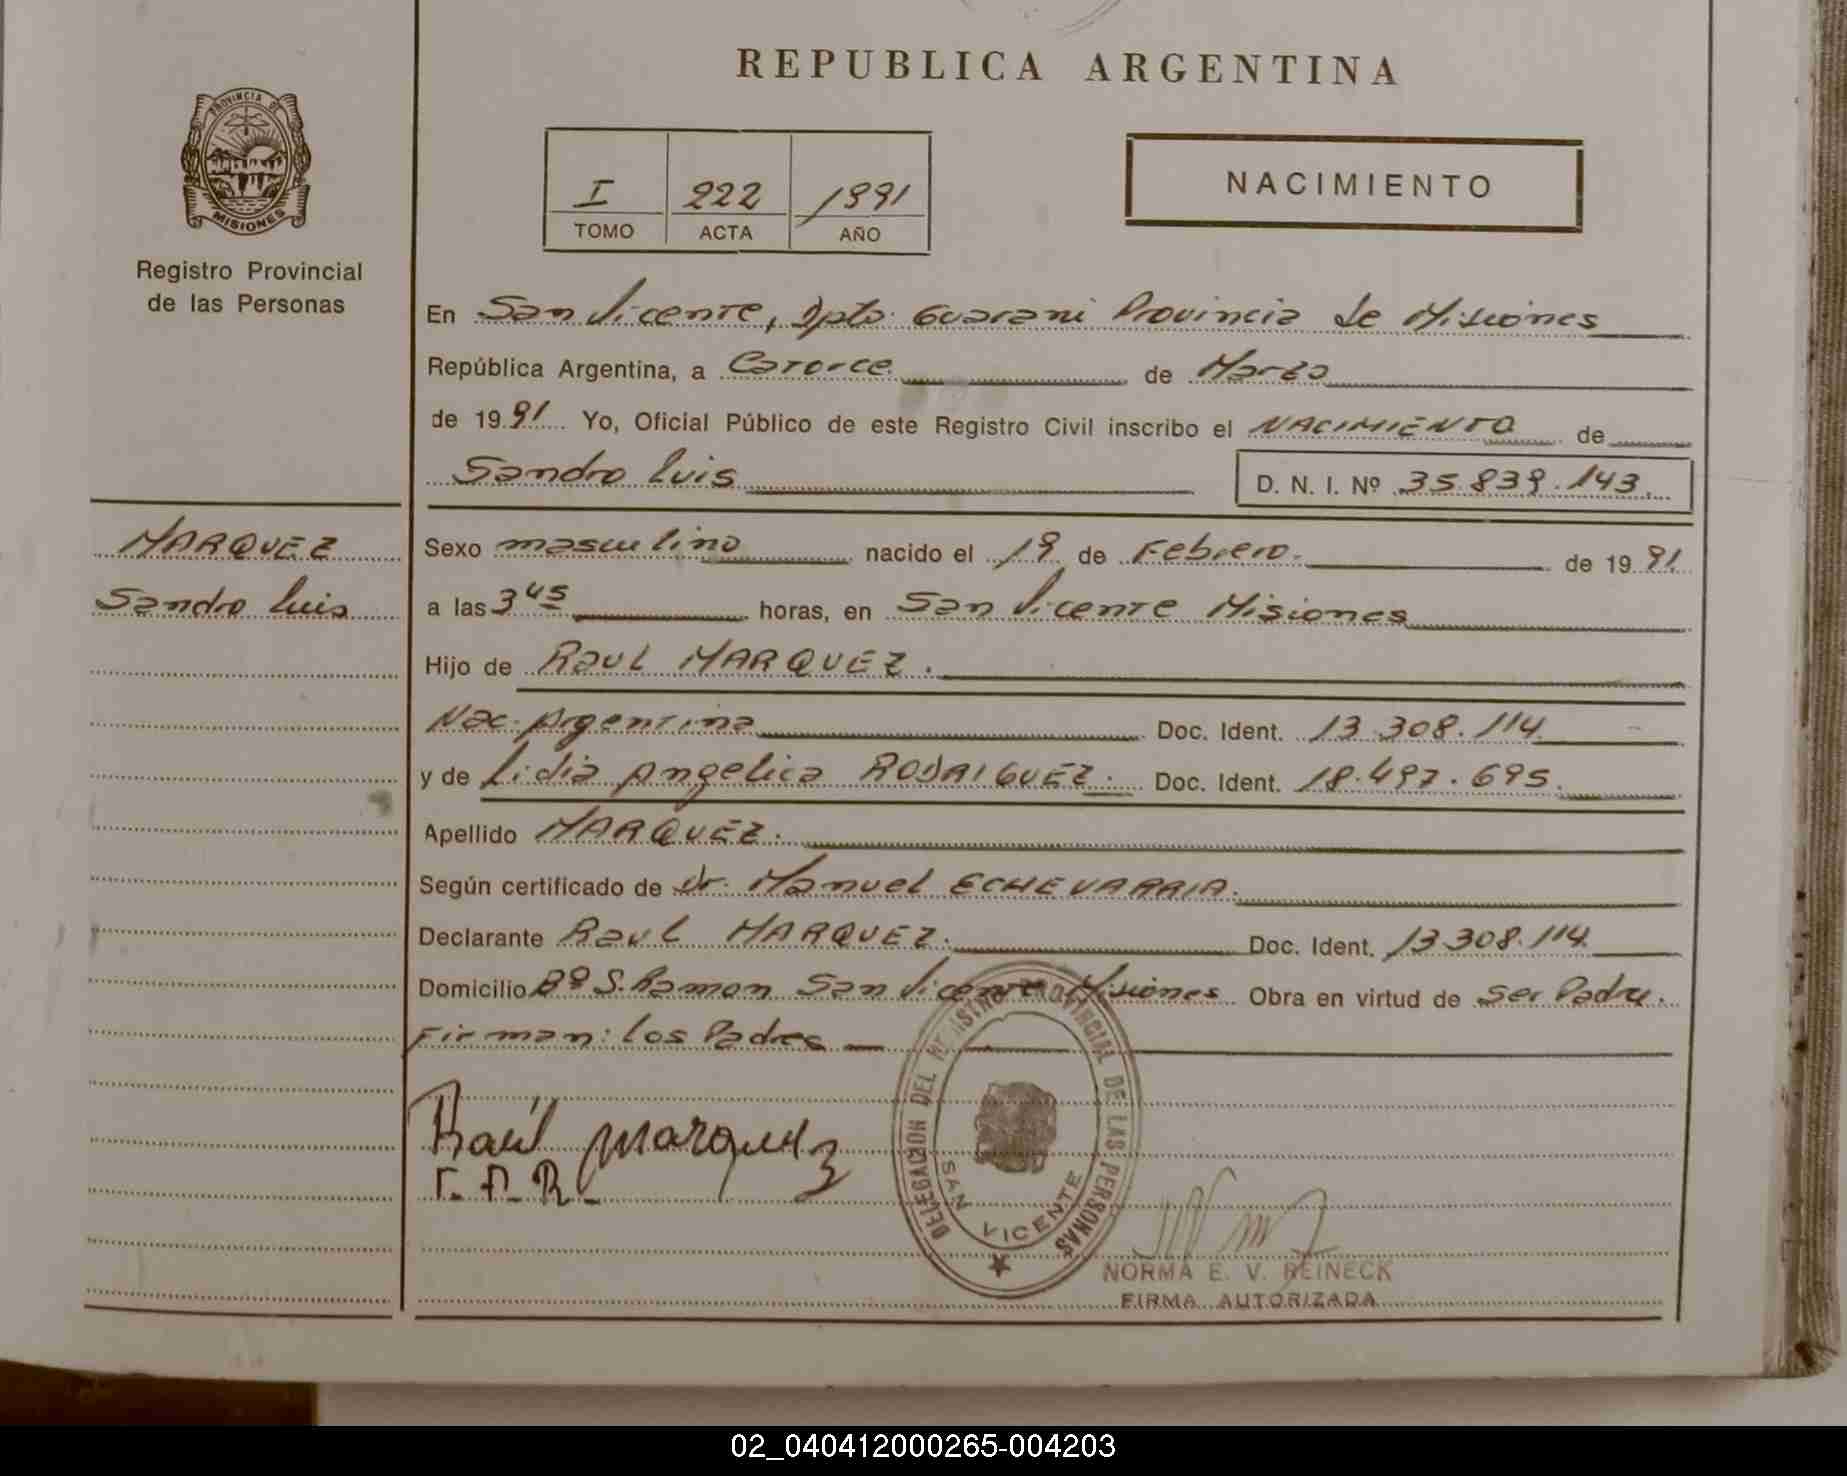 REPUBLICA ARGENTINA
PROVINCIA DE MISIONES
Registro Provincial
de las Personas
I 222 1991
TOMO ACTA AÑO
NACIMIENTO
En San Vicente, Dpto. Guarani Provincia de Misiones
República Argentina, a Catorce de Marzo
de 1991 Yo, Oficial Público de este Registro Civil inscribo el NACIMIENTO de
Sandro Luis D. N. I. Nº 35.839.143
MARQUEZ
Sandro Luis
Sexo masculino nacido el 19 de Febrero de 1991
a las 3 45 horas, en San Vicente Misiones
Hijo de Raul MARQUEZ.
Nac. Argentina Doc. Ident. 13.308.114
y de Lidia Angelica RODRIGUEZ. Doc. Ident. 18.497.695.
Apellido MARQUEZ.
Según certificado de dr. Manuel ECHEVARRIA.
Declarante Raul MARQUEZ. Doc. Ident. 13.308.114
Domicilio Bº S. Ramon San Vicente Misiones Obra en virtud de ser Padre.
Firman: los Padres
Raúl Marquez
DELEGACION DEL REGISTRO PROVINCIAL DE LAS PERSONAS
SAN VICENTE
NORMA E. V. REINECK
FIRMA AUTORIZADA
02_040412000265-004203